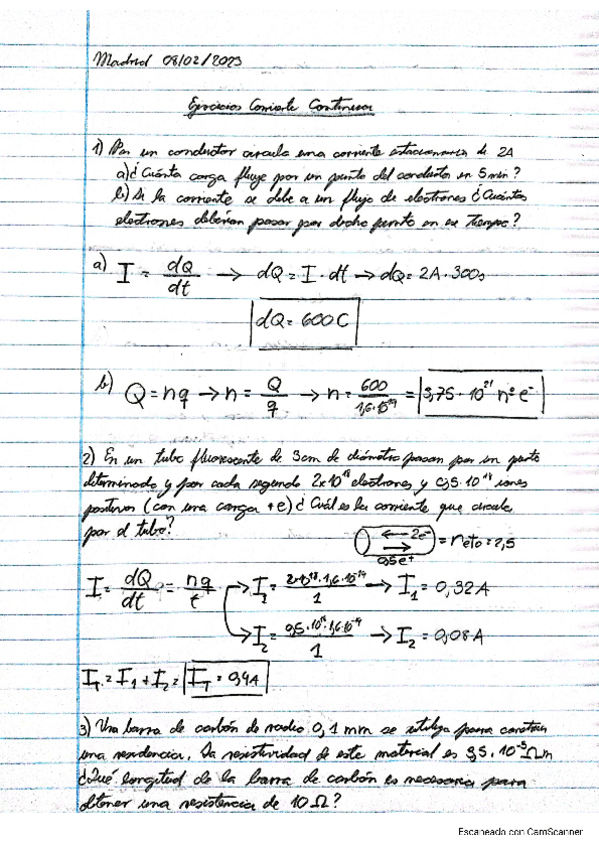 Madrid 08/02/2023
Ejercicios Corriente Continua
1) Por un conductor circula una corriente estacionaria de 2A
a) ¿Cuánta carga fluye por un punto del conductor en 5 min?
b) Si la corriente se debe a un flujo de electrones ¿Cuántos
electrones deberían pasar por dicho punto en ese tiempo?
a) I = dQ/dt → dQ = I · dt → dQ = 2A · 300s
dQ = 600 C
b) Q = nq → n = Q/q → n = 600/1,6·10⁻¹⁹ = 3,75 · 10²¹ nº e⁻
2) En un tubo fluorescente de 3cm de diámetro pasan por un punto
determinado y por cada segundo 2x10¹⁸ electrones y 0,5·10¹⁸ iones
positivos (con una carga +e) ¿Cuál es la corriente que circula
por el tubo?
← 2e⁻ → 0,5e⁺ = neto = 2,5
I = dQ/dt = nq/t → I₁ = 2x10¹⁸·1,6·10⁻¹⁹/1 → I₁ = 0,32 A
→ I₂ = 0,5·10¹⁸·1,6·10⁻¹⁹/1 → I₂ = 0,08 A
I_T = I₁ + I₂ = I_T = 0,4A
3) Una barra de carbón de radio 0,1 mm se utiliza para construir
una residencia. La resistividad de este material es 3,5 · 10⁻⁵ Ωm
¿Qué longitud de la barra de carbón es necesaria para
obtener una resistencia de 10 Ω?
Escaneado con CamScanner